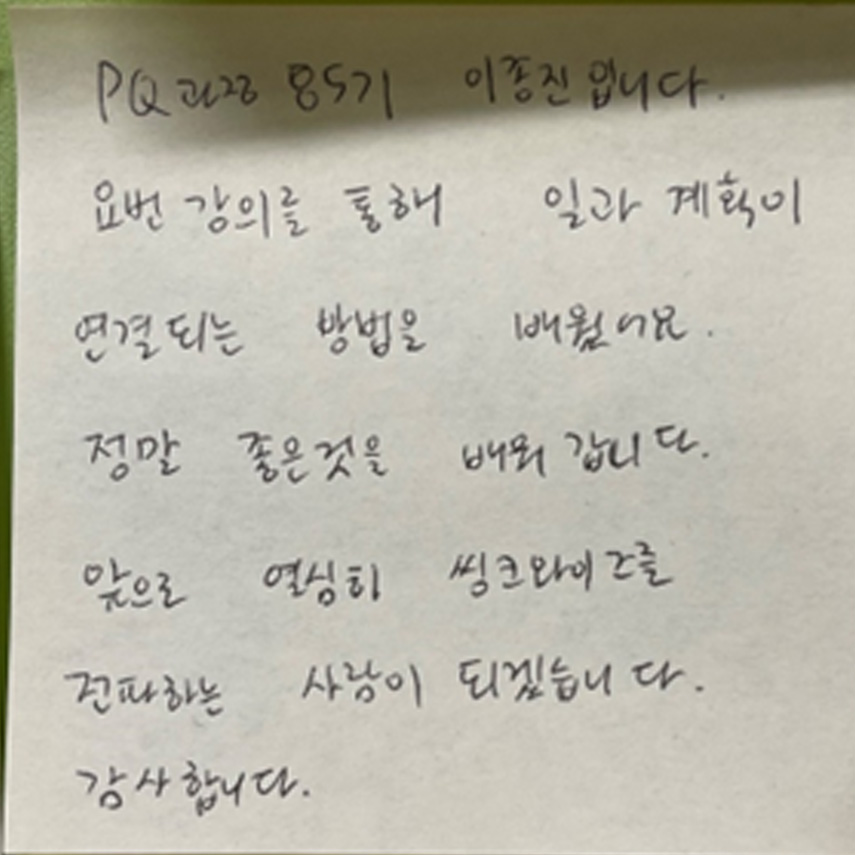 PQ과정 85기 이종진입니다.
요번 강의를 통해 일과 계획이
연결되는 방법을 배웠어요.
정말 좋은것을 배워 갑니다.
앞으로 열심히 씽크와이즈를
전파하는 사람이 되겠습니다.
감사합니다.